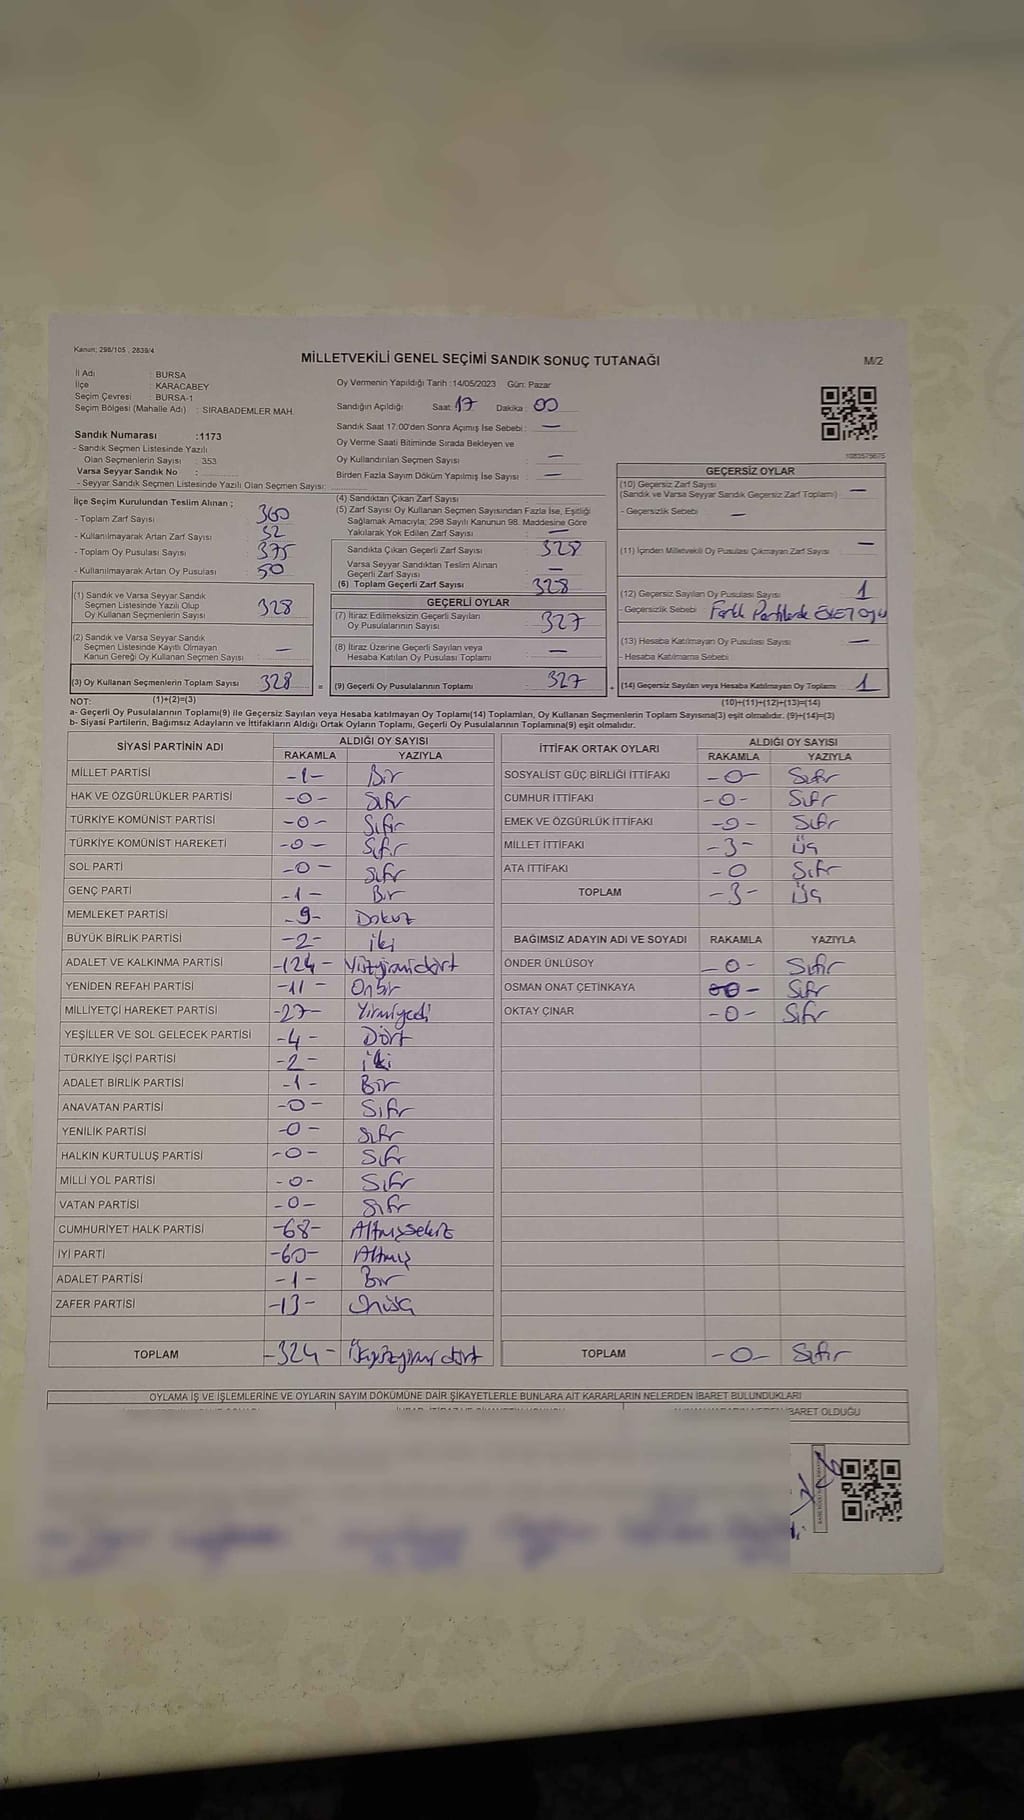 Kanun; 298/105 , 2839/4
MİLLETVEKİLİ GENEL SEÇİMİ SANDIK SONUÇ TUTANAĞI
M/2
İl Adı : BURSA
İlçe : KARACABEY
Seçim Çevresi : BURSA-1
Seçim Bölgesi (Mahalle Adı) : SIRABADEMLER MAH.
Sandık Numarası :1173
- Sandık Seçmen Listesinde Yazılı
Olan Seçmenlerin Sayısı : 353
Varsa Seyyar Sandık No :
- Seyyar Sandık Seçmen Listesinde Yazılı Olan Seçmen Sayısı:
Oy Vermenin Yapıldığı Tarih :14/05/2023 Gün: Pazar
Sandığın Açıldığı Saat: 17 Dakika : 00
Sandık Saat 17:00'den Sonra Açımış İse Sebebi : —
Oy Verme Saati Bitiminde Sırada Bekleyen ve
Oy Kullandırılan Seçmen Sayısı : —
Birden Fazla Sayım Döküm Yapılmış İse Sayısı : —
1083575675
İlçe Seçim Kurulundan Teslim Alınan ;
- Toplam Zarf Sayısı : 360
- Kullanılmayarak Artan Zarf Sayısı : 32
- Toplam Oy Pusulası Sayısı : 375
- Kullanılmayarak Artan Oy Pusulası : 50
(1) Sandık ve Varsa Seyyar Sandık
Seçmen Listesinde Yazılı Olup
Oy Kullanan Seçmenlerin Sayısı : 328
(2) Sandık ve Varsa Seyyar Sandık
Seçmen Listesinde Kayıtlı Olmayan
Kanun Gereği Oy Kullanan Seçmen Sayısı : —
(3) Oy Kullanan Seçmenlerin Toplam Sayısı 328 =
(1)+(2)=(3)
(4) Sandıktan Çıkan Zarf Sayısı :
(5) Zarf Sayısı Oy Kullanan Seçmen Sayısından Fazla İse, Eşitliği
Sağlamak Amacıyla; 298 Sayılı Kanunun 98. Maddesine Göre
Yakılarak Yok Edilen Zarf Sayısı : —
Sandıkta Çıkan Geçerli Zarf Sayısı : 328
Varsa Seyyar Sandıktan Teslim Alınan
Geçerli Zarf Sayısı : —
(6) Toplam Geçerli Zarf Sayısı : 328
GEÇERLİ OYLAR
(7) İtiraz Edilmeksizin Geçerli Sayılan
Oy Pusulalarının Sayısı : 327
(8) İtiraz Üzerine Geçerli Sayılan veya
Hesaba Katılan Oy Pusulası Toplamı : —
(9) Geçerli Oy Pusulalarının Toplamı : 327 +
GEÇERSİZ OYLAR
(10) Geçersiz Zarf Sayısı
(Sandık ve Varsa Seyyar Sandık Geçersiz Zarf Toplamı) : —
- Geçersizlik Sebebi : —
(11) İçinden Milletvekili Oy Pusulası Çıkmayan Zarf Sayısı : —
(12) Geçersiz Sayılan Oy Pusulası Sayısı : 1
- Geçersizlik Sebebi : Farklı Partilerde
(13) Hesaba Katılmayan Oy Pusulası Sayısı : —
- Hesaba Katılmama Sebebi :
(14) Geçersiz Sayılan veya Hesaba Katılmayan Oy Toplamı : 1
(10)+(11)+(12)+(13)=(14)
NOT:
a- Geçerli Oy Pusulalarının Toplamı(9) ile Geçersiz Sayılan veya Hesaba katılmayan Oy Toplamı(14) Toplamları, Oy Kullanan Seçmenlerin Toplam Sayısına(3) eşit olmalıdır. (9)+(14)=(3)
b- Siyasi Partilerin, Bağımsız Adayların ve İttifakların Aldığı Ortak Oyların Toplamı, Geçerli Oy Pusulalarının Toplamına(9) eşit olmalıdır.
SİYASİ PARTİNİN ADI ALDIĞI OY SAYISI
RAKAMLA YAZIYLA
MİLLET PARTİSİ -1- Bir
HAK VE ÖZGÜRLÜKLER PARTİSİ -0- Sıfır
TÜRKİYE KOMÜNİST PARTİSİ -0- Sıfır
TÜRKİYE KOMÜNİST HAREKETİ -0- Sıfır
SOL PARTİ -0- Sıfır
GENÇ PARTİ -1- Bir
MEMLEKET PARTİSİ -9- Dokuz
BÜYÜK BİRLİK PARTİSİ -2- iki
ADALET VE KALKINMA PARTİSİ -124- Yüzyirmidört
YENİDEN REFAH PARTİSİ -11- Onbir
MİLLİYETÇİ HAREKET PARTİSİ -27- Yirmiyedi
YEŞİLLER VE SOL GELECEK PARTİSİ -4- Dört
TÜRKİYE İŞÇİ PARTİSİ -2- iki
ADALET BİRLİK PARTİSİ -1- Bir
ANAVATAN PARTİSİ -0- Sıfır
YENİLİK PARTİSİ -0- Sıfır
HALKIN KURTULUŞ PARTİSİ -0- Sıfır
MİLLİ YOL PARTİSİ -0- Sıfır
VATAN PARTİSİ -0- Sıfır
CUMHURİYET HALK PARTİSİ -68- Altmışsekiz
İYİ PARTİ -60- Altmış
ADALET PARTİSİ -1- Bir
ZAFER PARTİSİ -13- Onüç
TOPLAM -324- Üçyüzyirmi dört
İTTİFAK ORTAK OYLARI ALDIĞI OY SAYISI
RAKAMLA YAZIYLA
SOSYALİST GÜÇ BİRLİĞİ İTTİFAKI -0- Sıfır
CUMHUR İTTİFAKI -0- Sıfır
EMEK VE ÖZGÜRLÜK İTTİFAKI -0- Sıfır
MİLLET İTTİFAKI -3- Üç
ATA İTTİFAKI -0 Sıfır
TOPLAM -3- Üç
BAĞIMSIZ ADAYIN ADI VE SOYADI RAKAMLA YAZIYLA
ÖNDER ÜNLÜSOY -0- Sıfır
OSMAN ONAT ÇETİNKAYA 0- Sıfır
OKTAY ÇINAR -0- Sıfır
TOPLAM -0- Sıfır
OYLAMA İŞ VE İŞLEMLERİNE VE OYLARIN SAYIM DÖKÜMÜNE DAİR ŞİKAYETLERLE BUNLARA AİT KARARLARIN NELERDEN İBARET BULUNDUKLARI
İBARET OLDUĞU